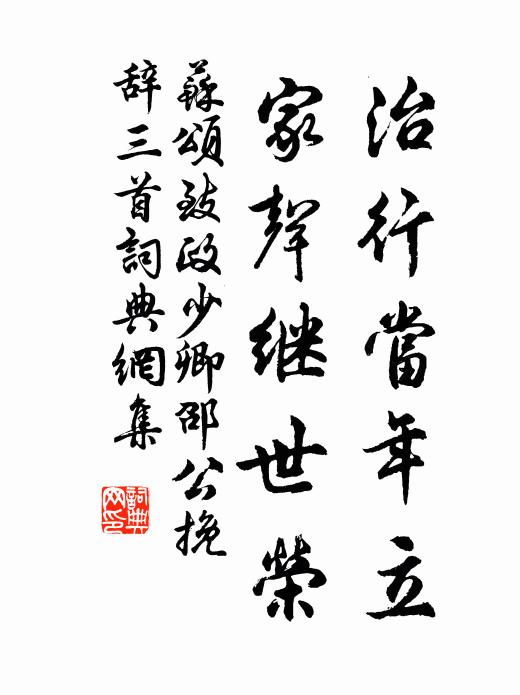 治行當年立
家聲继世榮
蘇頌致政少卿邵公挽
辞三首詞典網集
詞典网印